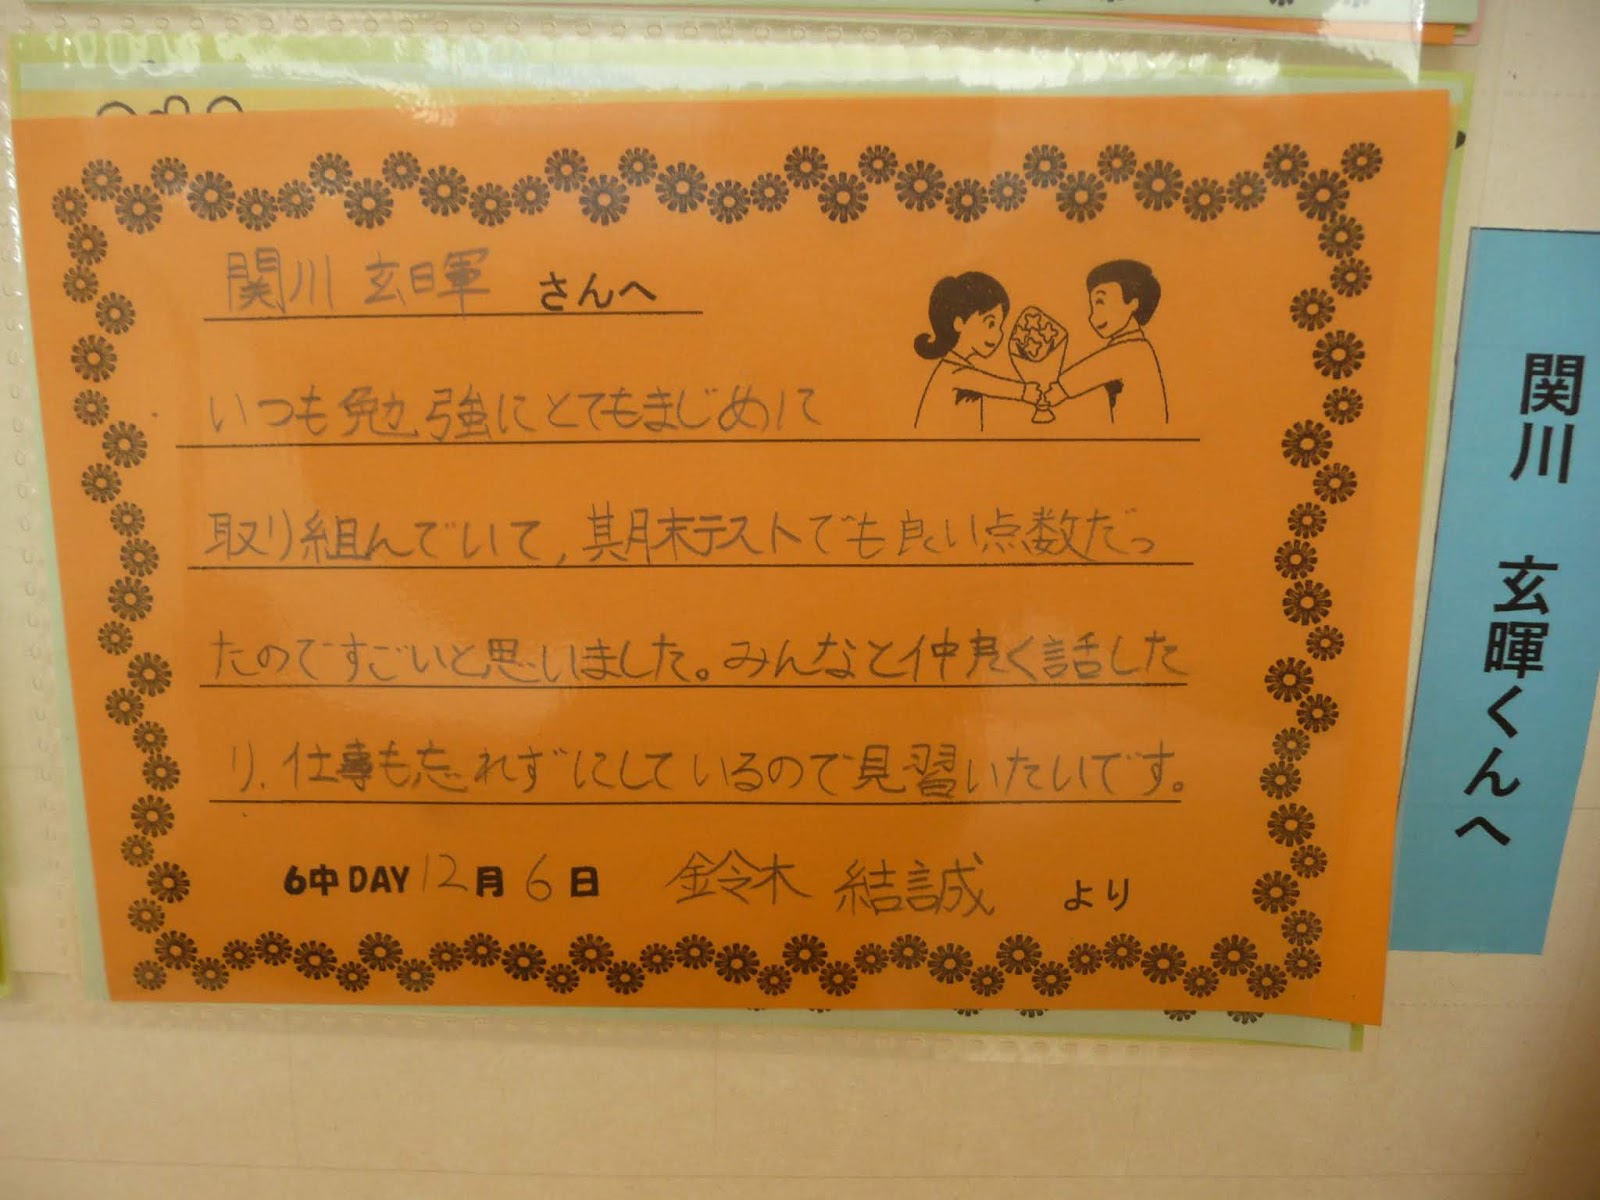 関川 玄暉 さんへ
いつも勉強にとてもまじめに
取り組んでいて,期末テストでも良い点数だっ
たのですごいと思いました。みんなと仲良く話した
り、仕事も忘れずにしているので見習いたいです。
6中DAY 12月 6日 鈴木 結誠 より
関川 玄暉くんへ